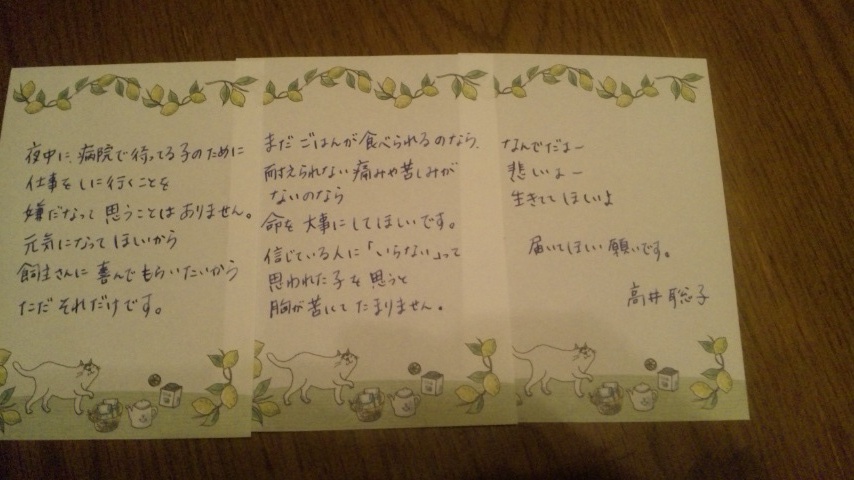 夜中に、病院で待ってる子のために
仕事をしに行くことを
嫌だなって思うことはありません。
元気になってほしいから
飼主さんに喜んでもらいたいから
ただそれだけです。
まだごはんが食べられるのなら、
耐えられない痛みや苦しみが
ないのなら
命を大事にしてほしいです。
信じている人に「いらない」って
思われた子を思うと
胸が苦しくてたまりません。
なんでだよー
悲しいよー
生きててほしいよ
届いてほしい願いです。
高井聡子